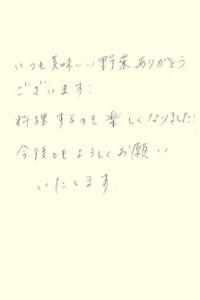 いつも美味しい野菜ありがとう
ございます!
料理するのも楽しくなりました!
今後ともよろしくお願い
いたします.